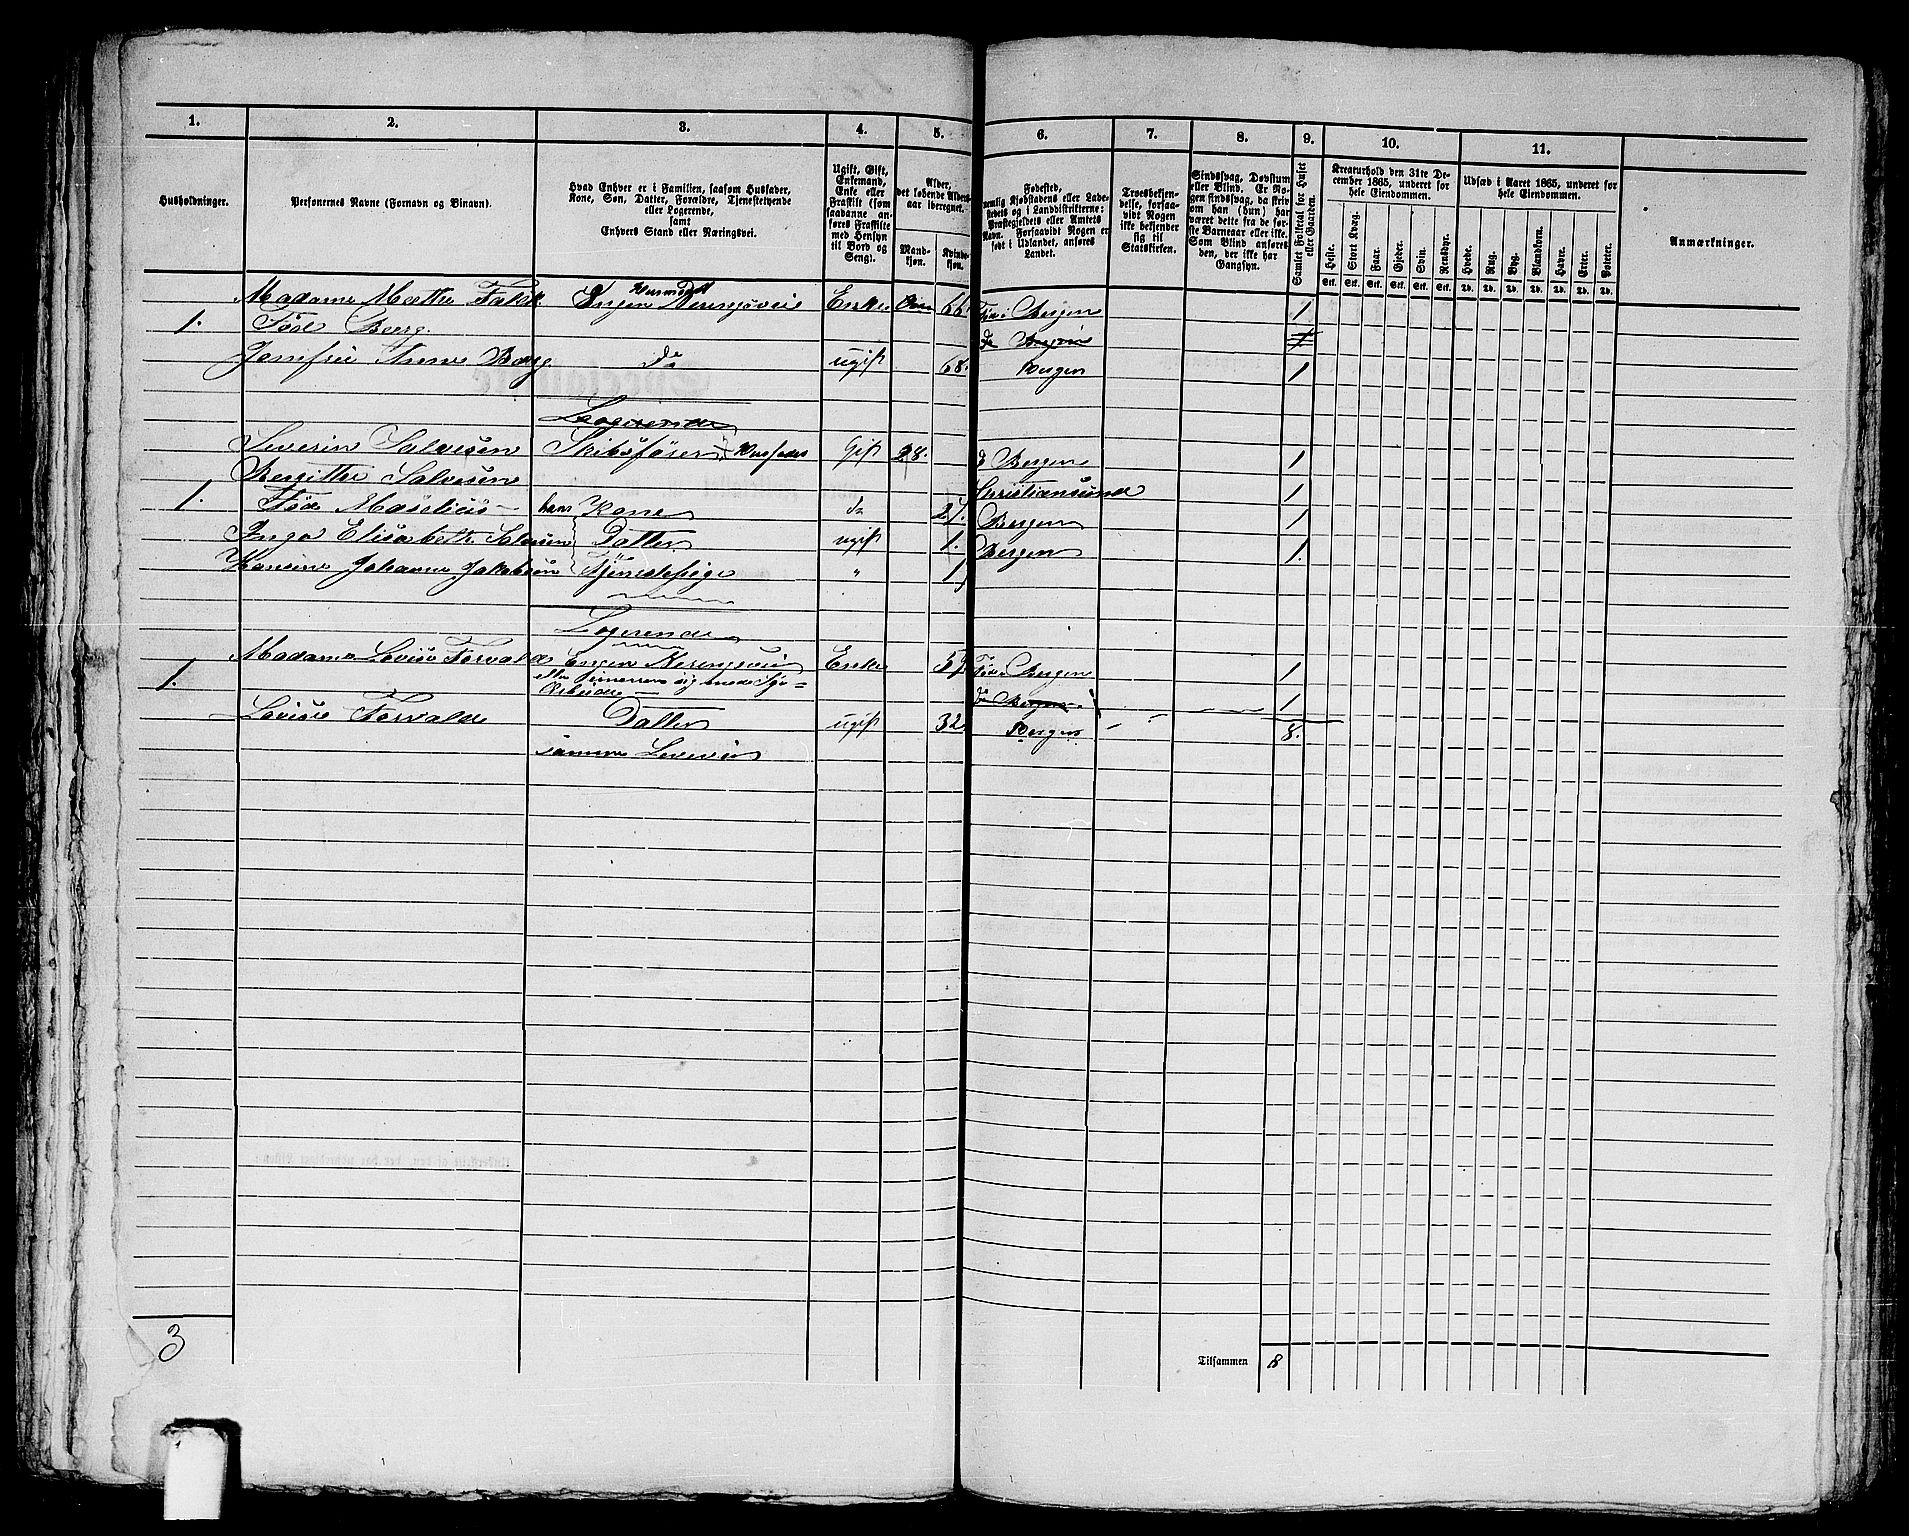 1. 2. 3. 4. 5. 6. 7. 8. 9. 10. 11.
Husholdninger.
Personernes Navne (Fornavn og Binavn).
Hvad Enhver er i Familien, saasom Husfader,
Kone, Søn, Datter, Forældre, Tjenestetyende
eller Logerende,
samt
Enhvers Stand eller Næringsvei.
Ugift, Gift,
Enkemand,
Enke eller
Fraskilt (som
saadanne an-
føres Fraskilte
med Hensyn
til Bord og
Seng).
Alder,
det løbende Alders-
aar iberegnet.
Mand-
kjøn.
Kvinde-
kjøn.
Fødested,
nemlig Kjøbstadens eller Lade-
stedets og i Landdistrikterne:
Præstegjeldets eller Amtets
Navn. Forsaavidt Nogen er
født i Udlandet, anføres
Landet.
Troesbekjen-
delse, forsaa-
vidt Nogen
ikke bekjender
sig til
Statskirken.
Sindssvag, Døvstum
eller Blind. Er No-
gen sindssvag, da skriv
om han (hun) har
været dette fra de før-
ste Barneaar eller ikke.
Som Blind anføres
den, der ikke har
Gangsyn.
Samlet Folketal for Huset
eller Gaarden.
Kreaturhold den 31te De-
cember 1865, underet for
hele Eiendommen.
Heste. Stort Kvæg. Faar. Gjeder. Svin. Rensdyr.
Stk. Stk. Stk. Stk. Stk. Stk.
Udsæd i Aaret 1865, underet for
hele Eiendommen.
Hvede. Rug. Byg. Blandkorn. Havre. Erter. Poteter.
Td. Td. Td. Td. Td. Td. Td.
Anmærkninger.
Madame Mæthe Falck Ingen Næringsveie Enke 66. Bergen 1
1. Føde Berg.
Jomfru Anna Berg do ugift 68. Bergen 1
Logerende
Severin Salvesen Skibsfører Husfader Gift 28. Bergen 1
Bergitte Salvesen Christiansund 1
1. Føde Maselius hans Kone do 27. Bergen 1
Inga Elisabeth Salvesen Datter ugift 1. Bergen 1.
Hansine Johanne Jakobsen Tjenestepige "
Logerende
Madame Lovise Forvald Ingen Næringsvei Enke Bergen 1
1.
Bergen 1
Lovise Forvald Datter ugift 32. Bergen 8.
samme Levevei
3
Tilsammen 8